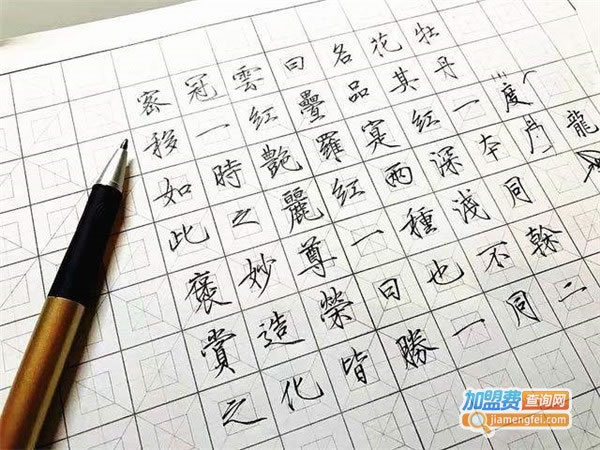 牡丹一本同幹二
花其红深淺不同
名品寔两種也一
曰疊羅红一曰勝
雲红艷麗尊榮皆
冠一時之妙造化
密移如此褒賞之
度
丹
龍
加盟费查询网
jiamengfei.com